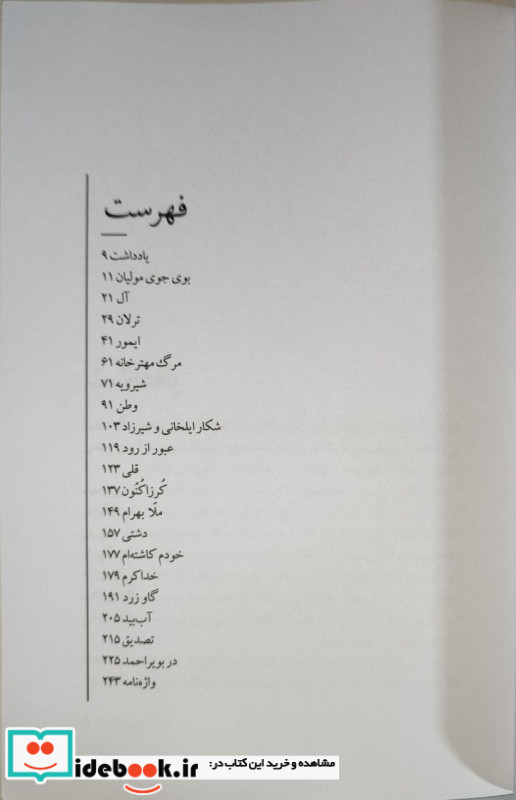 فهرست
یادداشت ۹
بوی جوی مولیان ۱۱
آل ۲۱
ترلان ۲۹
ایمور ۴۱
مرگ مهترخانه ۶۱
شیرویه ۷۱
وطن ۹۱
شکار ایلخانی و شیرزاد ۱۰۳
عبور از رود ۱۱۹
قلی ۱۲۳
کُرزاکُنون ۱۳۷
ملّا بهرام ۱۴۹
دشتی ۱۵۷
خودم کاشته‌ام ۱۷۷
خداکرم ۱۷۹
گاو زرد ۱۹۱
آب‌بید ۲۰۵
تصدیق ۲۱۵
در بویراحمد ۲۲۵
واژه‌نامه ۲۴۳
مشاهده و خرید این کتاب در:
idebook.ir